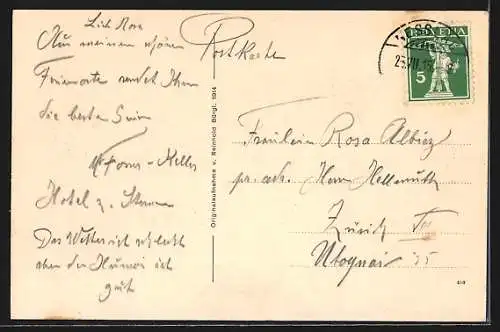 Lieb Rosa
Aus meinem schönen
Ferienorte sendet Ihnen
die besten
Keller
Hotel z. Sternen
Das Wetter ist schlecht
aber der Humor ist
gut
Postkarte
Originalaufnahme v. Reinhold Bürgi. 1914
HELVETIA
5
Fräulein Rosa Albiez
pr. adr. Herrn Hellmuth
Zürich
Utoquai 35